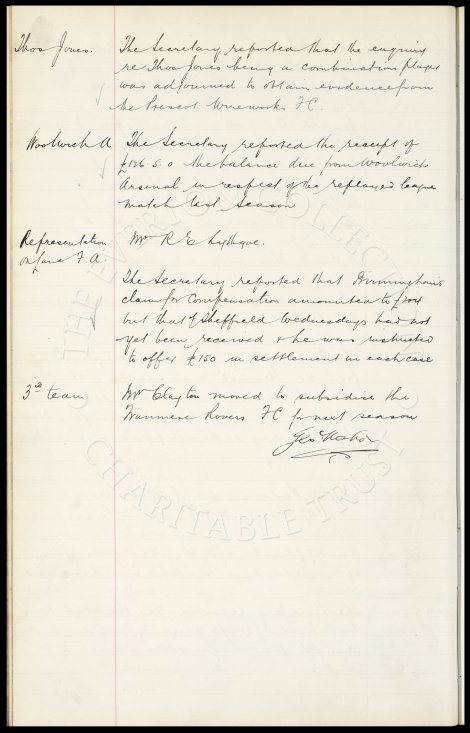 Thos Jones.
The Secretary reported that the enquiry
re Thos Jones being a combination player
was adjourned to obtain evidence from
the Prescot Wireworks FC.
Woolwich A
The Secretary reported the receipt of
£126.5.0 the balance due from Woolwich
Arsenal in respect of the replayed league
match last season
Representation
on Lanc F A.
Mr R E Lythgoe.
The Secretary reported that Birmingham's
claim for compensation amounted to £204
but that of Sheffield Wednesdays had not
yet been received & he was instructed
to offer £150 in settlement in each case
3rd team
Mr Clayton moved to subsidise the
Tranmere Rovers FC for next season
Geo Mahon
THE EVERTON COLLECTION
CHARITABLE TRUST